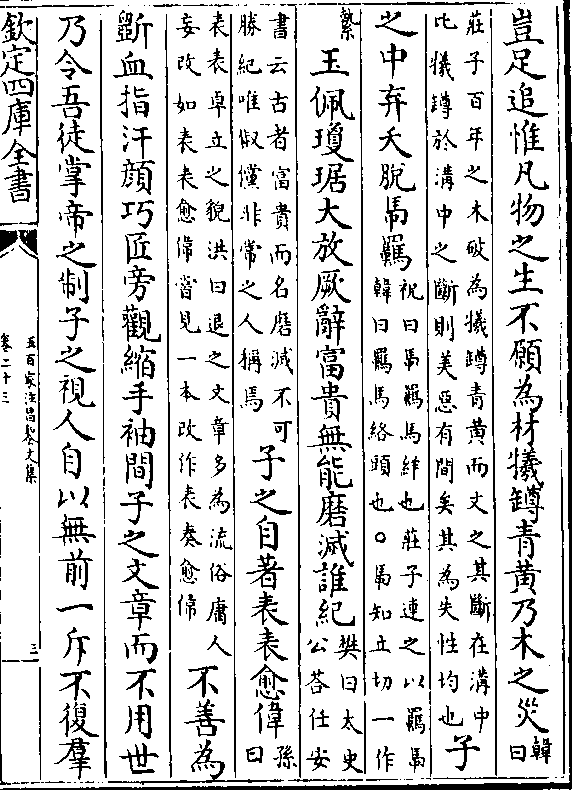 豈足追惟凡物之生不願為材犧罇青黄乃木之災
韓曰
莊子百年之木破為犧罇青黄而文之其斷在溝中
比犧罇於溝中之斷則美惡有間矣其為失性均也
子
之中弃天脫馽羈
祝曰馽羈馬絆也莊子連之以羈馽
韓曰羈馬絡頭也○馽知立切一作
縶
玉佩瓊琚大放厥辭富貴無能磨滅誰紀
樊曰太史
公荅任安
書云古者富貴而名磨滅不可
勝紀唯俶儻非常之人稱焉
子之自著表表愈偉
孫
曰
表表卓立之貌洪曰退之文章多為流俗庸人
妄改如表表愈偉嘗見一本改作表奏愈偉
不善為
斵血指汗顔巧匠旁觀縮手袖間子之文章而不用世
乃令吾徒掌帝之制子之視人自以無前一斥不復羣
欽定四庫全書
五百家注昌黎文集
卷二十三
三